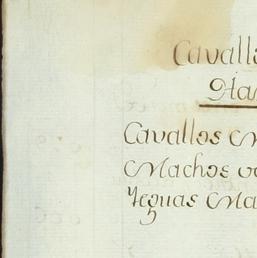 Cavall
Ha
Cavallos M
Machos
Yeguas Ma